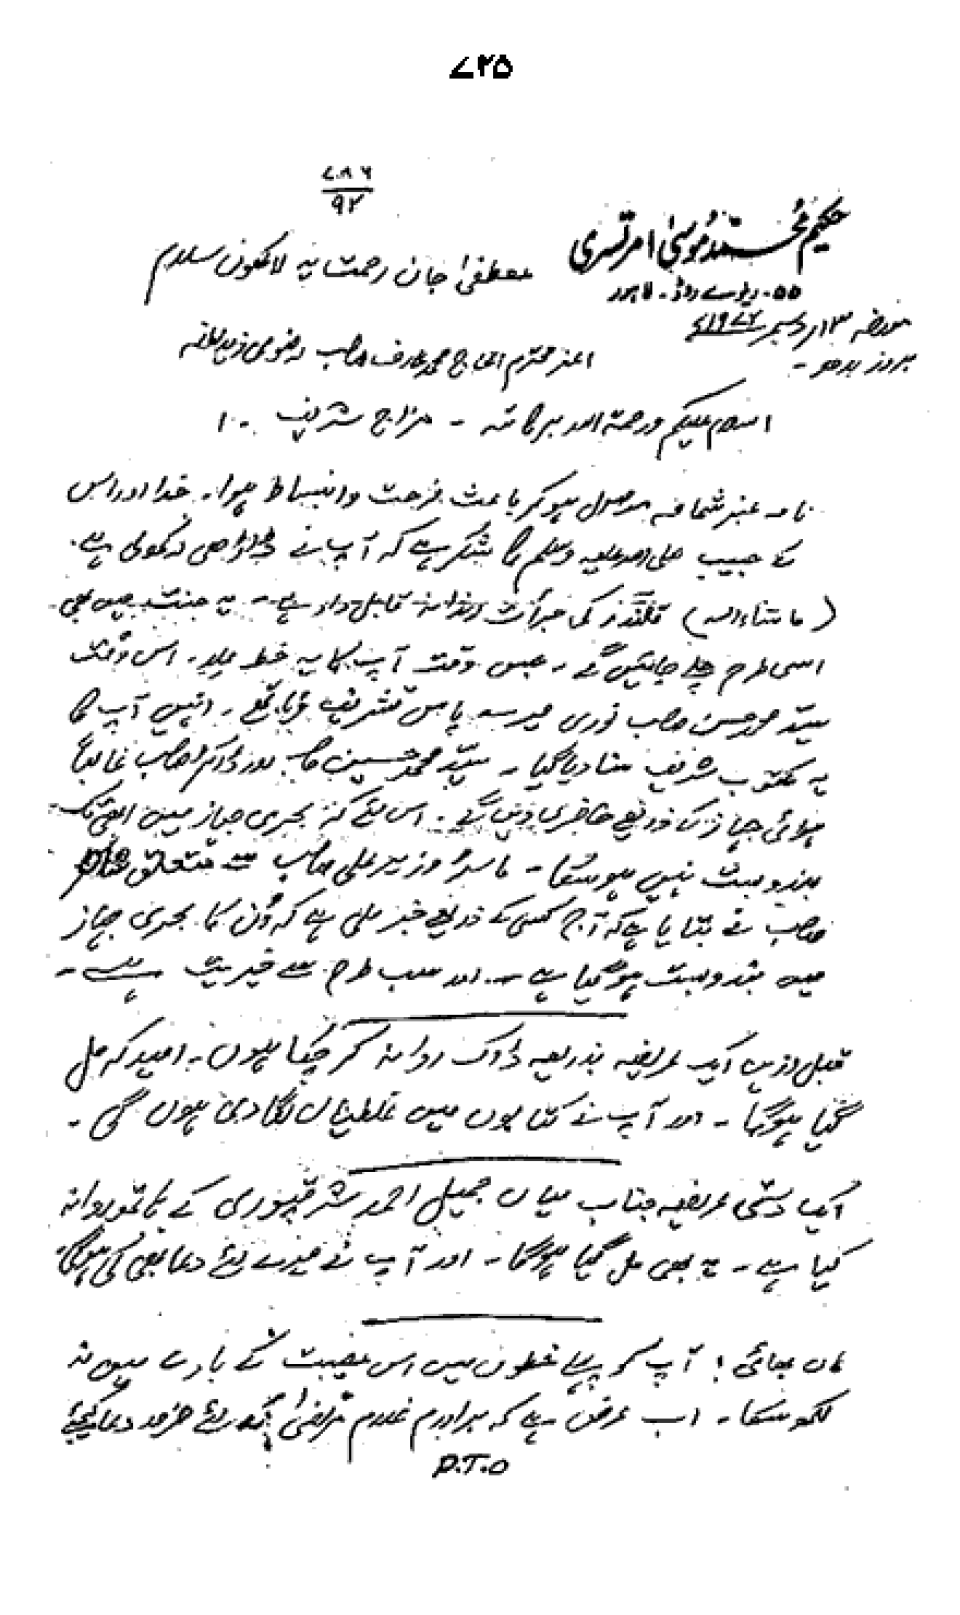 ۷۲۵
۷۸۶
۹۲
حکیم محمد موسیٰ امرتسری
۵۵۔ ریلوے روڈ۔ لاہور
مصطفیٰ جان رحمت پہ لاکھوں سلام
مورخہ ۱۳ دسمبر ۱۹۷۲ء
بروز بدھ۔
اعز محترم الحاج محمد عارف صاحب رضوی زید لطفہ
السلام علیکم ورحمۃ اللہ وبرکاتہ ۔ مزاج شریف ۔
نامہ عنبر شمامہ موصول ہو کر باعث فرحت و انبساط ہوا۔ خدا اور اس
کے حبیب صلی اللہ علیہ وسلم کا شکر ہے کہ آپ نے رکھ لی ہے۔
(ماشاء اللہ) قلندر کی جرأت رندانہ قابل داد ہے۔ یہ جنت میں بھی
اسی طرح چلے جائیں گے۔ جس وقت آپ کا یہ خط ملا۔ اس وقت
سید محمد حسن صاحب نوری میرے پاس تشریف فرما تھے۔ انہیں آپ کا
یہ مکتوب شریف سنا دیا گیا۔ سید محمد حسین صاحب اور صاحب غالباً
ہوائی جہاز کے ذریعے حاضری دیں گے۔ اس لئے کہ بحری جہاز میں ابھی تک
بندوبست نہیں ہو سکا۔ ماسٹر وزیر علی صاحب کے متعلق شاہ
صاحب نے بتایا ہے کہ آج کسی کے ذریعے خبر ملی ہے کہ ان کا بحری جہاز
میں بندوبست ہو گیا ہے۔ اور سب طرح سے خیریت ہے۔
قبل ازیں ایک عریضہ بذریعہ ڈاک روانہ کر چکا ہوں۔ امید کہ مل
گیا ہوگا۔ اور آپ نے کتابوں میں غلطیاں لگا دی ہوں گی۔
ایک دستی عریضہ جناب میاں جمیل احمد شرقپوری کے ہاتھ روانہ
کیا ہے۔ یہ بھی مل گیا ہوگا۔ اور آپ نے میرے لئے دعا بھی کی ہوگی۔
ہاں بھائی! آپ کو پہلے خطوں میں اس مصیبت کے بارے میں نہ
لکھ سکا۔ اب عرض ہے کہ برادرم غلام مرتضیٰ کے لئے ضرور دعا کیجئے
P.T.O